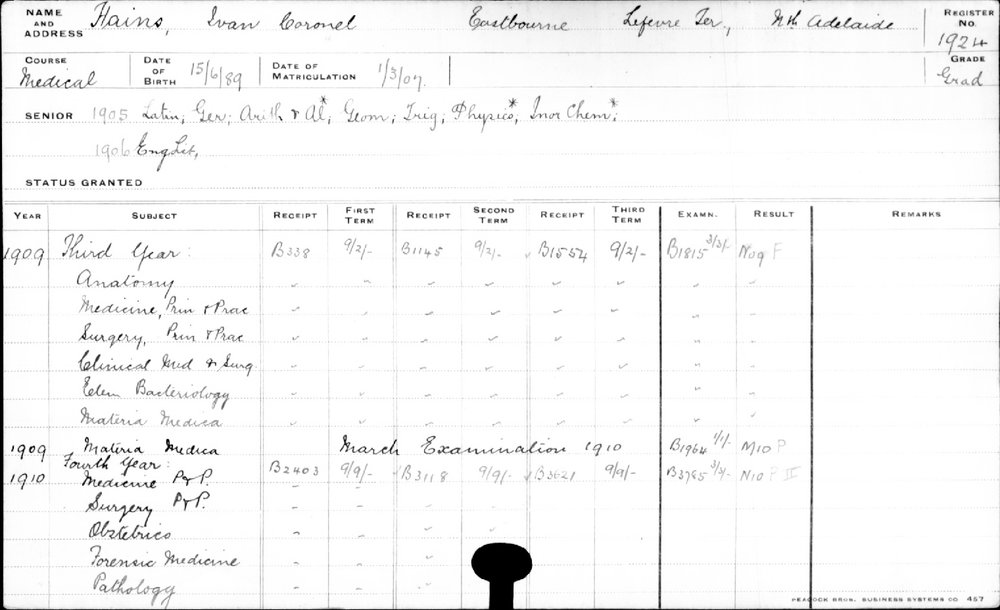 NAME AND ADDRESS Hains, Ivan Coronel Eastbourne Lefevre Ter, Nth Adelaide REGISTER No. 1924
COURSE Medical DATE OF BIRTH 15/6/89 DATE OF MATRICULATION 1/3/07. GRADE Grad
SENIOR 1905 Latin; Ger; Arith & Al*; Geom; Trig; Physics*; Inor Chem*;
1906 Eng Lit,
STATUS GRANTED
YEAR SUBJECT RECEIPT FIRST TERM RECEIPT SECOND TERM RECEIPT THIRD TERM EXAMN. RESULT REMARKS
1909 Third Year: B338 9/2/- B1145 9/2/- B1554 9/2/- B1815 3/3/- N09 F
Anatomy
Medicine, Prin & Prac
Surgery, Prin & Prac
Clinical Med & Surg
Elem Bacteriology
Materia Medica
1909 Materia Medica March Examination 1910 B1964 1/1/- M10 P
Fourth Year: B2403 9/9/- B3118 9/9/- B3621 9/9/- B3785 3/3/- N10 P II
1910 Medicine P & P.
Surgery P & P.
Obstetrics
Forensic Medicine
Pathology
PEACOCK BROS. BUSINESS SYSTEMS CO 457